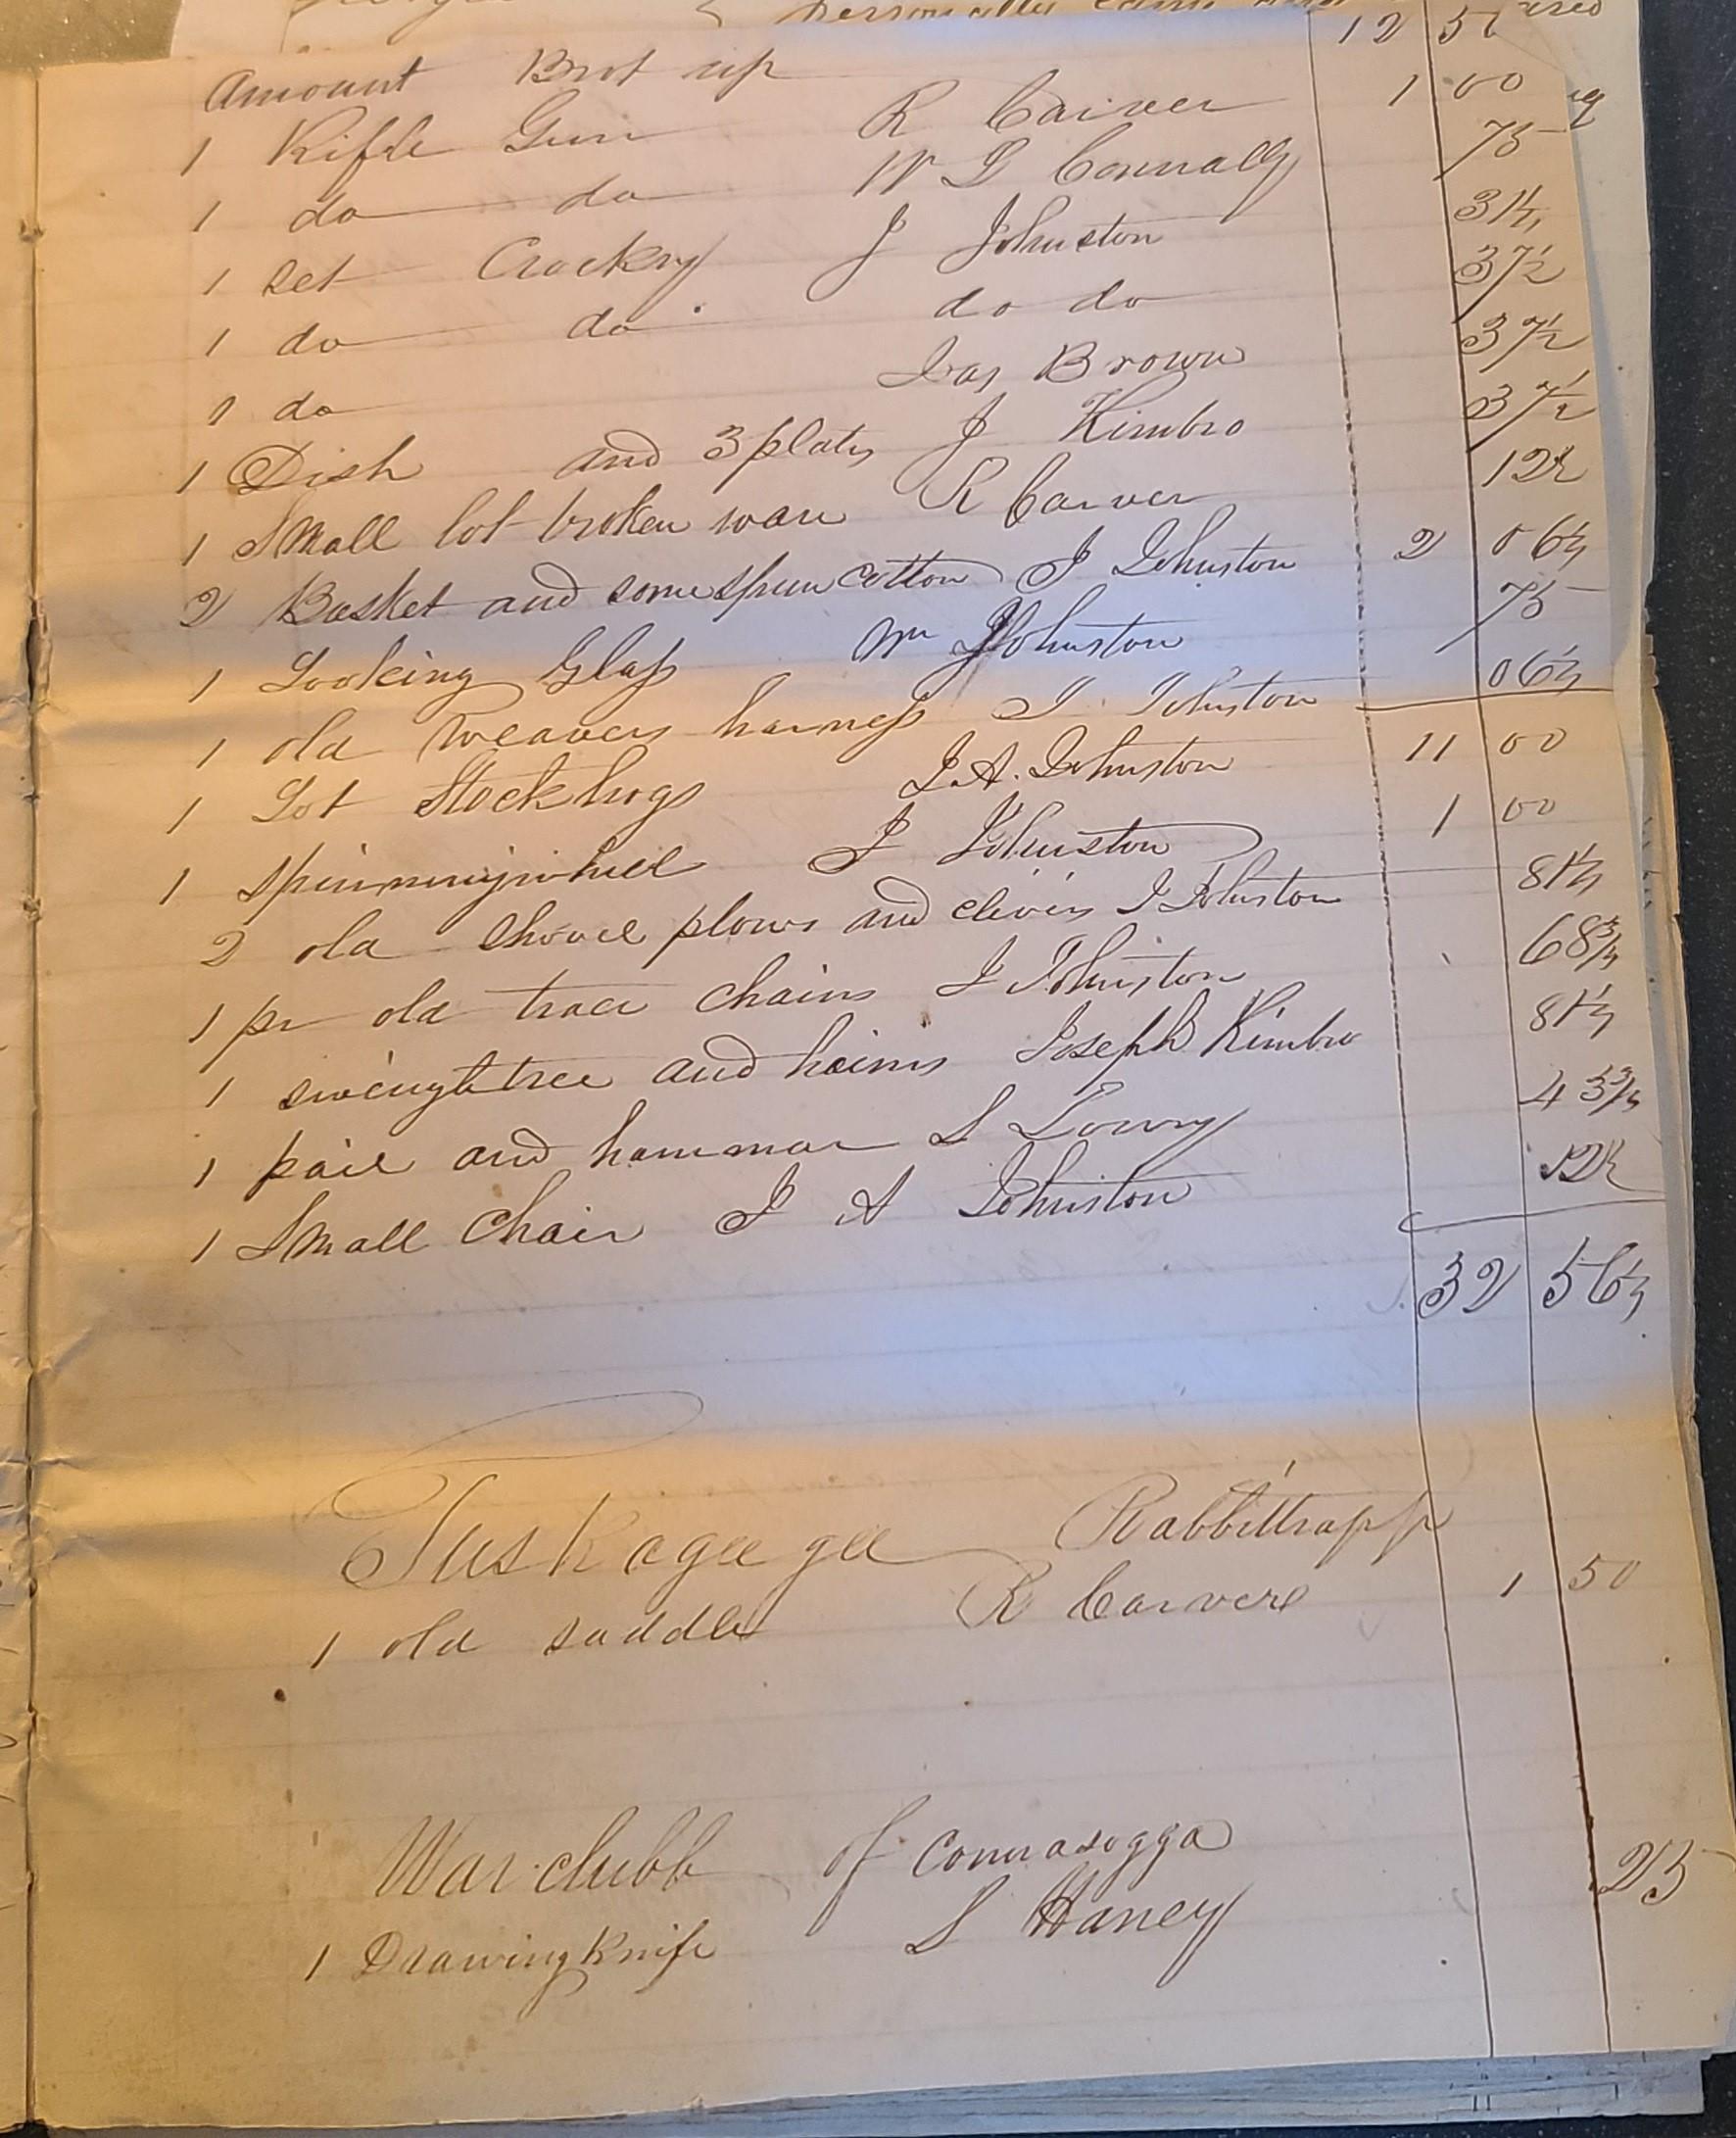 Personally came
Amount Brot up 12 50
1 Rifle Gun R Carver 1 00
1 do do W G Connally 75
1 set Crockry J Johnston 31¼
1 do do do do 37½
1 do Jas Brown 37½
1 Dish and 3 plates J Kimbro 37½
1 Small lot broken ware R Carver 12½
2 Basket and some spun cotton J Johnston 2 06¼
1 Looking Glass Wm Johnston 75
1 old weavers harness J Johnston 06¼
1 Lot Stock hogs J. A. Johnston 11 00
1 spinningwheel J Johnston 1 00
2 old shovel plows and clevis J Johnston 81¼
1 pr old trace chains J Johnston 68¾
1 swengletree and haims Joseph Kimbro 81¼
1 pail and hammar S Lowry 43¾
1 Small Chair J A Johnston 12½
32 56¼
Tuskegeegee Rabbittrapp
1 old saddle R Carver 1 50
War clubb of Connasogga
1 Drawing Knife S Haney 25